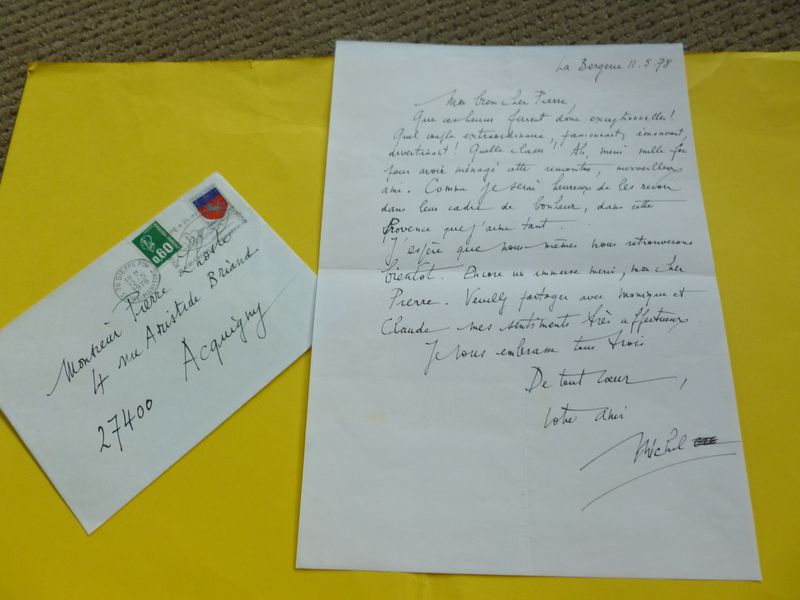 La Bergerie 11.5.78
Mon bien cher Pierre,
Que ces heures furent donc exceptionnelles!
Quel couple extraordinaire, passionnant, émouvant,
divertissant! Quelle classe! Ah, merci mille fois
pour avoir ménagé cette rencontre, merveilleux
ami. Comme je serai heureux de les revoir
dans leur cadre de bonheur, dans cette
Provence que j'aime tant.
J'espère que nous-mêmes nous retrouverons
bientôt. Encore un immense merci, mon cher
Pierre. Veuillez partager avec Monique et
Claude mes sentiments très affectueux.
Je vous embrasse tous trois
De tout cœur,
votre ami
Michel
0.80
76 DIEPPE PPAL
1978
Monsieur Pierre Lhoste
4 rue Aristide Briand
Acquigny
27400